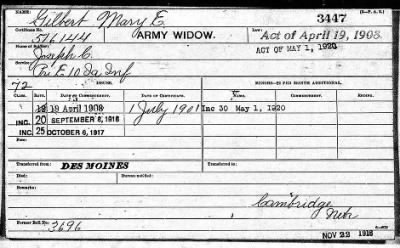 Gilbert Mary E. 3447
Certificate No. 516144 ARMY WIDOW. Act of April 19, 1908.
Name of Soldier: Joseph C. ACT OF MAY 1, 1920
Service: Pri E. 10 Ia Inf
72 ISSUE. MINORS—$2 PER MONTH ADDITIONAL.
CLASS. RATE. DATE OF COMMENCEMENT. DATE OF CERTIFICATE. NAME.
12 19 April 1908 1 July 1901 Inc 30 May 1, 1920
INC. 20 SEPTEMBER 8, 1916
INC. 25 OCTOBER 6, 1917
Transferred from DES MOINES Transferred to
Died Bureau notified
Remarks:
Cambridge
Neb
Former Roll No. 3696
NOV 22 1916